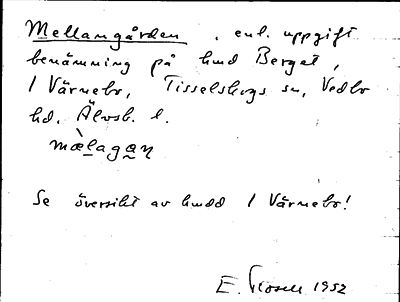 Mellangården, enl. uppgift
benämning på hmd Berget,
1 Värnebo, Tisselskogs sn, Vedbo
hd. Älvsb. l.
mæ̀lagan̥
Se översikt av hmdd 1 Värnebo!
E. 1952